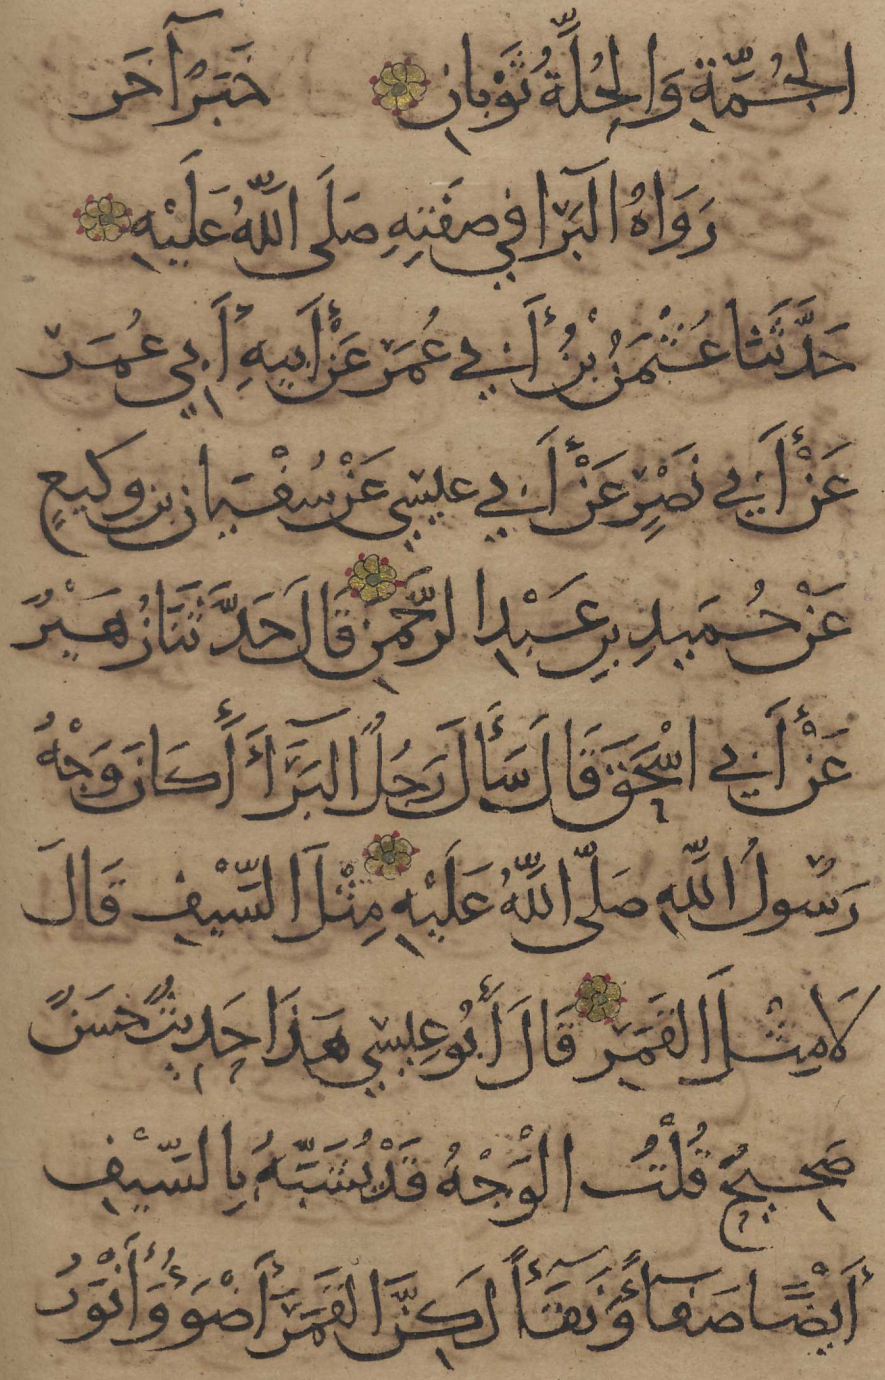 الجُمَّةِ وَالحُلَّةُ ثَوْبَانِ خَبَرٌ آخَر
رَوَاهُ البَرَا فِي صِفَتِهِ صَلَى اللَّهُ عَلَيْهِ
حَدَّثَنَا عُثْمَنُ بْنُ أَبِي عُمَرَ عَنْ أَبِيهِ أَبِي عُمَرَ
عَنْ أَبِي نَصْرٍ عَنْ أَبِي عِيسَى عَنْ سُفْيَانَ بنِ وَكِيعٍ
عَنْ حُمَيدِ بنِ عَبْدِ الرَّحْمَنِ قَالَ حَدَّثَنَا زُهَيْرٌ
عَنْ أَبِي اسْحَقَ قَالَ سَأَلَ رَجُلٌ البَرَّاءَ أَكَانَ وَجْهُ
رَسُولِ اللَّهِ صَلَّى اللَّهُ عَلَيْهِ مِثْلَ السَّيْفِ قَالَ
لَا مِثْلَ القَمَرِ قَالَ أَبُو عِيسَى هَذَا حَدِيثٌ حَسَنٌ
صَحِيحٌ قُلْتُ الْوَجْهُ قَدْ يُشَبَّهُ بِالسَّيْفِ
أَيْضًا صَفَاً وَنَقَآءً لَكِنَّ القَمَرَ أَضْوَءُ وَأَنْوَرُ